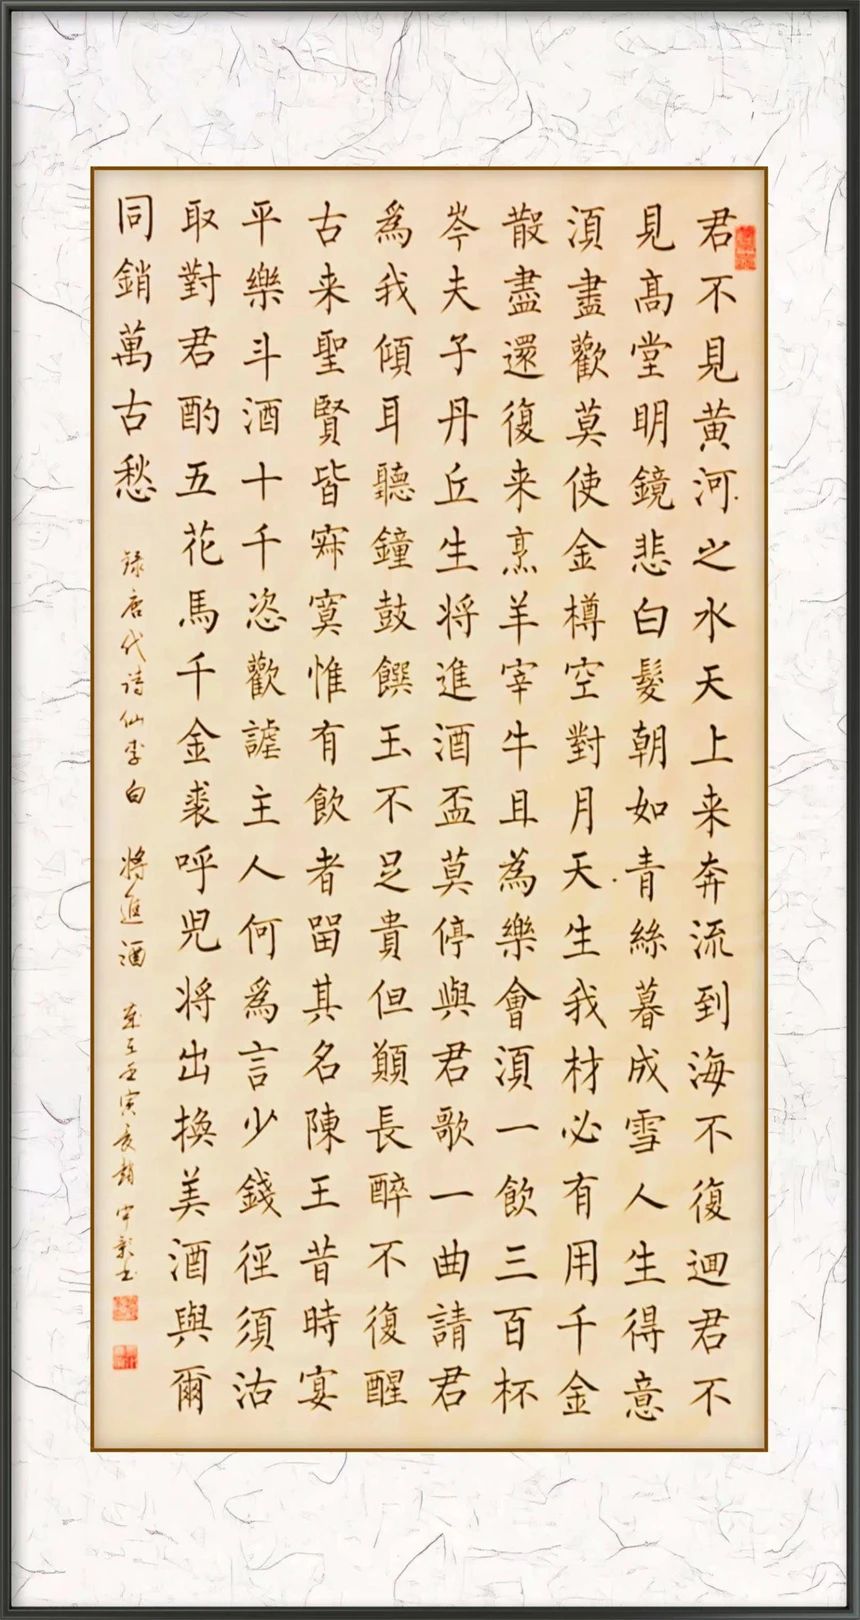 君不見黄河之水天上来奔流到海不復迴君不
見高堂明鏡悲白髮朝如青絲暮成雪人生得意
湏盡歡莫使金樽空對月天生我材必有用千金
散盡還復来烹羊宰牛且為樂會湏一飲三百杯
岑夫子丹丘生将進酒盃莫停與君歌一曲請君
爲我傾耳聽鐘鼓饌玉不足貴但願長醉不復醒
古来聖賢皆寂寞惟有飲者留其名陳王昔時宴
平樂斗酒十千恣歡謔主人何爲言少錢徑須沽
取對君酌五花馬千金裘呼兒将出換美酒與爾
同銷萬古愁
録唐代诗仙李白 将進酒 歲在壬寅